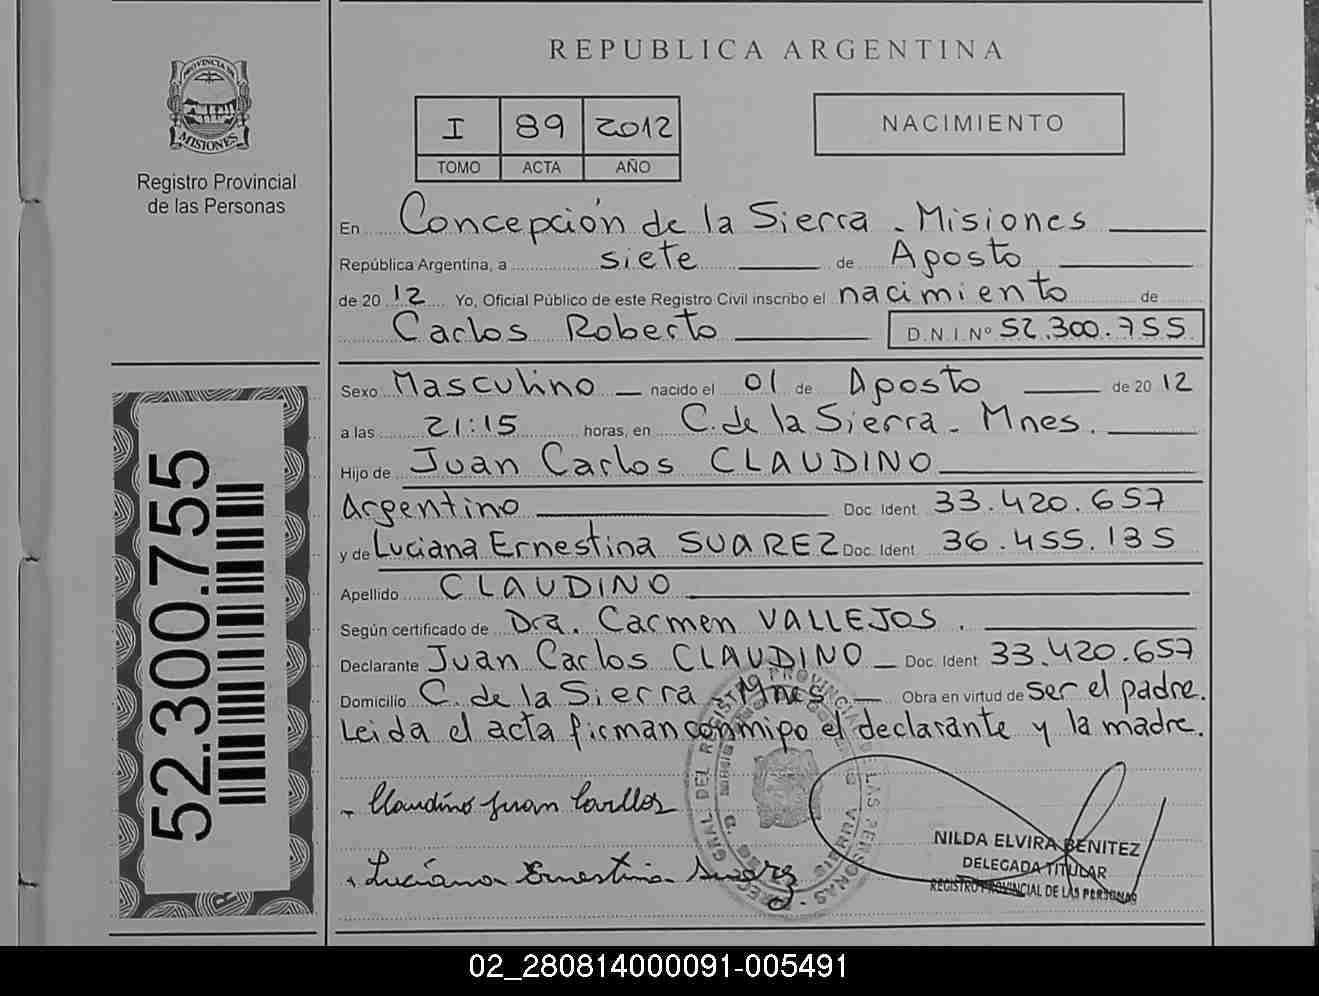 REPUBLICA ARGENTINA
PROVINCIA DE MISIONES
Registro Provincial
de las Personas
I 89 2012
TOMO ACTA AÑO
NACIMIENTO
En Concepción de la Sierra - Misiones
República Argentina, a siete de Agosto
de 2012 Yo, Oficial Público de este Registro Civil inscribo el nacimiento de
Carlos Roberto D.N.I.Nº 52.300.755
Sexo Masculino nacido el 01 de Agosto de 2012
a las 21:15 horas, en C. de la Sierra - Mnes.
Hijo de Juan Carlos CLAUDINO
Argentino Doc. Ident 33.420.657
y de Luciana Ernestina SUAREZ Doc. Ident 36.455.135
Apellido CLAUDINO
Según certificado de Dra. Carmen VALLEJOS.
Declarante Juan Carlos CLAUDINO Doc. Ident 33.420.657
Domicilio C. de la Sierra - Mnes Obra en virtud de ser el padre.
Leida el acta firman conmigo el declarante y la madre.
Claudino Juan Carllos
Luciana Ernestina Suarez
NILDA ELVIRA BENITEZ
DELEGADA TITULAR
REGISTRO PROVINCIAL DE LAS PERSONAS
52.300.755
02_280814000091-005491